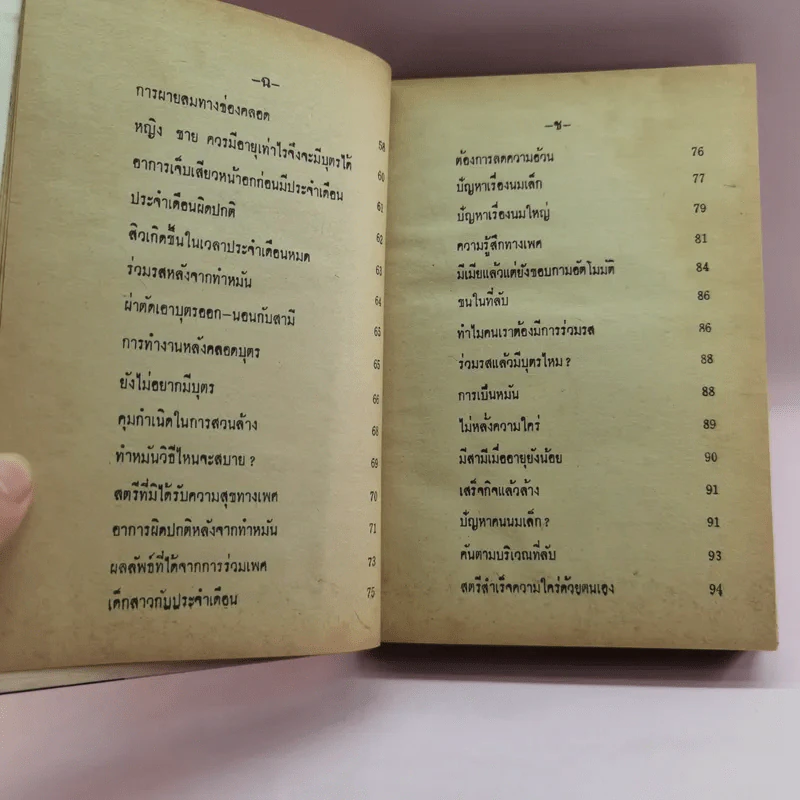 –ฉ–
การผายลมทางช่องคลอด 58
หญิง ชาย ควรมีอายุเท่าไรจึงจะมีบุตรได้ 60
อาการเจ็บเสียวหน้าอกก่อนมีประจำเดือน 61
ประจำเดือนผิดปกติ 62
สิวเกิดขึ้นในเวลาประจำเดือนหมด 63
ร่วมรสหลังจากทำหมัน 64
ผ่าตัดเอาบุตรออก–นอนกับสามี 65
การทำงานหลังคลอดบุตร 65
ยังไม่อยากมีบุตร 66
คุมกำเนิดในการสวนล้าง 68
ทำหมันวิธีไหนจะสบาย ? 69
สตรีที่มิได้รับความสุขทางเพศ 70
อาการผิดปกติหลังจากทำหมัน 71
ผลลัพธ์ที่ได้จากการร่วมเพศ 73
เด็กสาวกับประจำเดือน 75
–ช–
ต้องการลดความอ้วน 76
ปัญหาเรื่องนมเล็ก 77
ปัญหาเรื่องนมใหญ่ 79
ความรู้สึกทางเพศ 81
มีเมียแล้วแต่ยังชอบกามอัตโนมัติ 84
ขนในที่ลับ 86
ทำไมคนเราต้องมีการร่วมรส 86
ร่วมรสแล้วมีบุตรไหม ? 88
การเป็นหมัน 88
ไม่หลั่งความใคร่ 89
มีสามีเมื่ออายุยังน้อย 90
เสร็จกิจแล้วล้าง 91
ปัญหาคนนมเล็ก ? 91
คันตามบริเวณที่ลับ 93
สตรีสำเร็จความใคร่ด้วยตนเอง 94